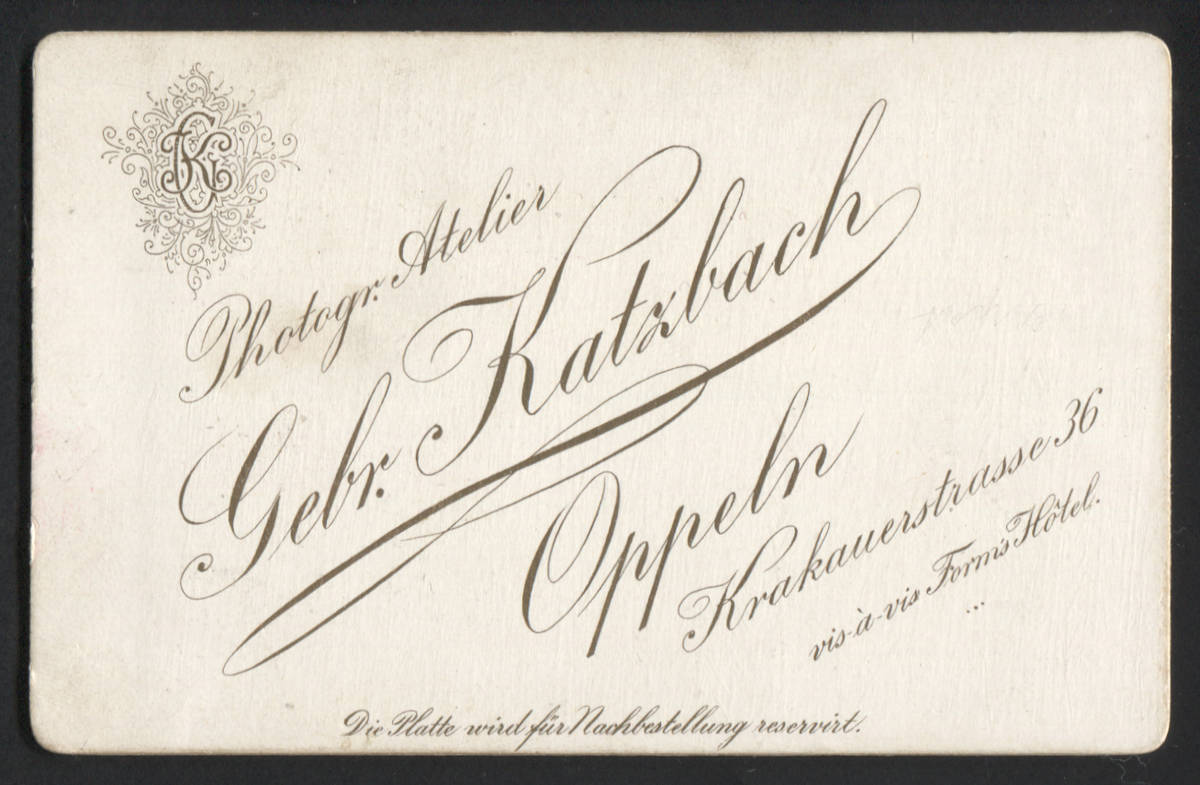 GK
Photogr. Atelier
Gebr. Katzbach
Oppeln
Krakauerstrasse 36
vis-à-vis Form's Hôtel.
...
Die Platte wird für Nachbestellung reservirt.